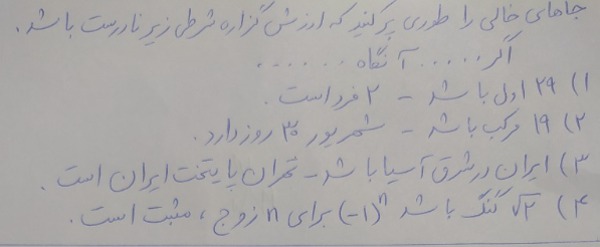 جاهای خالی را طوری پر کنید که ارزش گزاره شرطی زیر نادرست باشد.
اگر ..... آنگاه .......
۱) ۲۹ اول باشد - ۲ فرد است.
۲) ۱۹ مرکب باشد - شهریور ۳۰ روز دارد.
۳) ایران در شرق آسیا باشد - تهران پایتخت ایران است.
۴) √۲ گنگ باشد (-۱)^n برای n زوج، مثبت است.